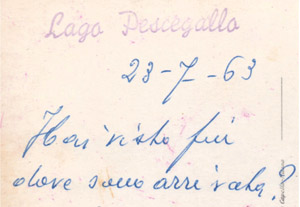 Lago Pescegallo
23-7-63
Hai visto fin
dove sono arrivata?